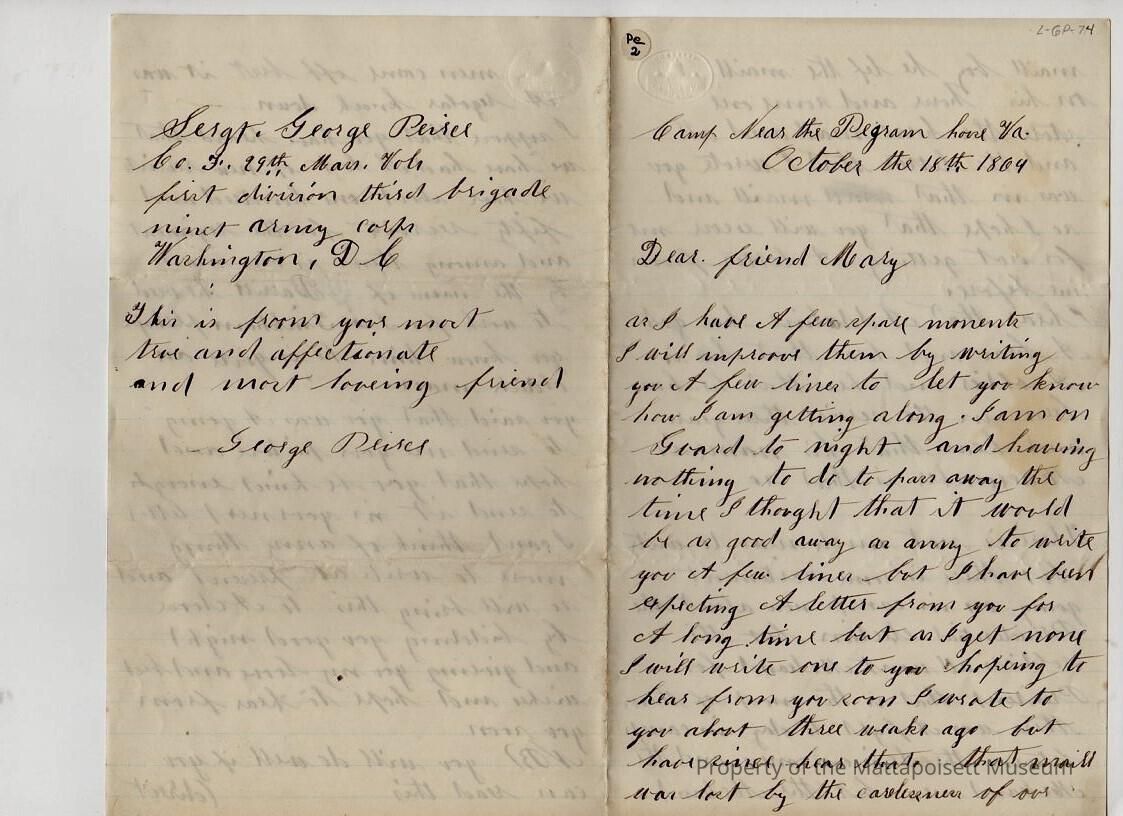 L-GP-74
Pe
2
Sergt. George Peirce
Co. F. 29th Mass. Vols
first division third brigade
ninet army corps
Washington, D C
This is from your most
true and affectionate
and most loveing friend
George Peirce
Camp Near the Pegram house Va.
October the 18th 1864
Dear. friend Mary
as I have A few spare moments
I will improove them by writing
you A few lines to let you know
how I am getting along. I am on
Guard to night and haveing
nothing to do to pass away the
time I thought that it would
be as good away as anny to write
you A few lines but I have been
expecting A letter from you for
A long time but as I get none
I will write one to you hopeing to
hear from you soon I wrote to
you about three weaks ago but
have since hear that that maill
was lost by the carelessness of our
Property of the Mattapoisett Museum